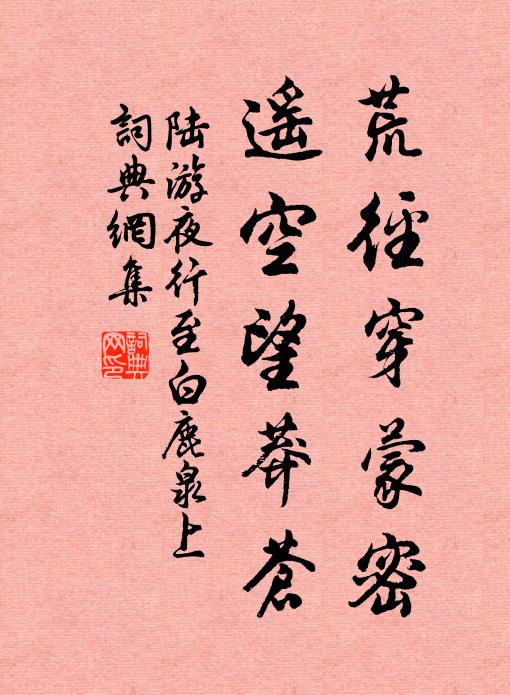 荒徑穿蒙密
遥空望莽蒼
陆游夜行至白鹿泉上
詞典網集
詞典
网印